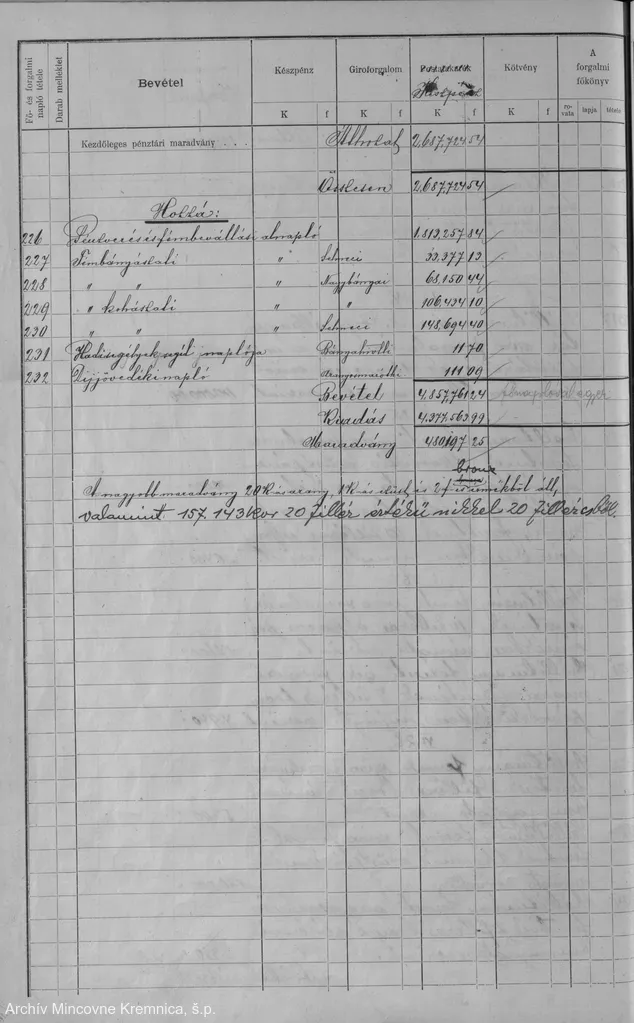 Fő- és forgalmi napló tétele
Darab melléklet
Bevétel
Készpénz
Giroforgalom
Készpénz
Kötvény
A forgalmi főkönyv
K f K f K f K f rovata lapja tétele
Kezdőleges pénztári maradvány . . . Áthozat 2,687,724 54
Összesen 2,687,724 54
Hozzá:
226 alnapló 1.813,257 84
227 Fémbányászati " 33,377 13
228 " " " Nagybányai 68,150 44
229 " kohászati " " 106,434 10
230 " " " 148,694 40
231 Hadisegélyek naplója 11 70
232 napló 111 09
Bevétel 4,857,761 24
Kiadás 4,377,563 99
Maradvány 480,197 25
bronz
A nagyobb maradvány 20 K-ás arany, 1 K-ás ezüst és 2 f érmékből áll,
valamint 157,143 kor 20 fillér értékű nikkel 20 filléresből.
Archív Mincovne Kremnica, š.p.